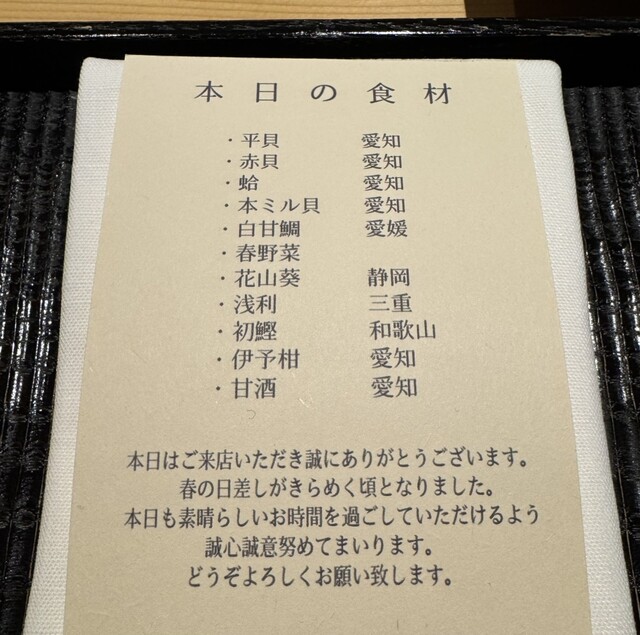 本日の食材
・平貝 愛知
・赤貝 愛知
・蛤 愛知
・本ミル貝 愛知
・白甘鯛 愛媛
・春野菜
・花山葵 静岡
・浅利 三重
・初鰹 和歌山
・伊予柑 愛知
・甘酒 愛知
本日はご来店いただき誠にありがとうございます。
春の日差しがきらめく頃となりました。
本日も素晴らしいお時間を過ごしていただけるよう
誠心誠意努めてまいります。
どうぞよろしくお願い致します。